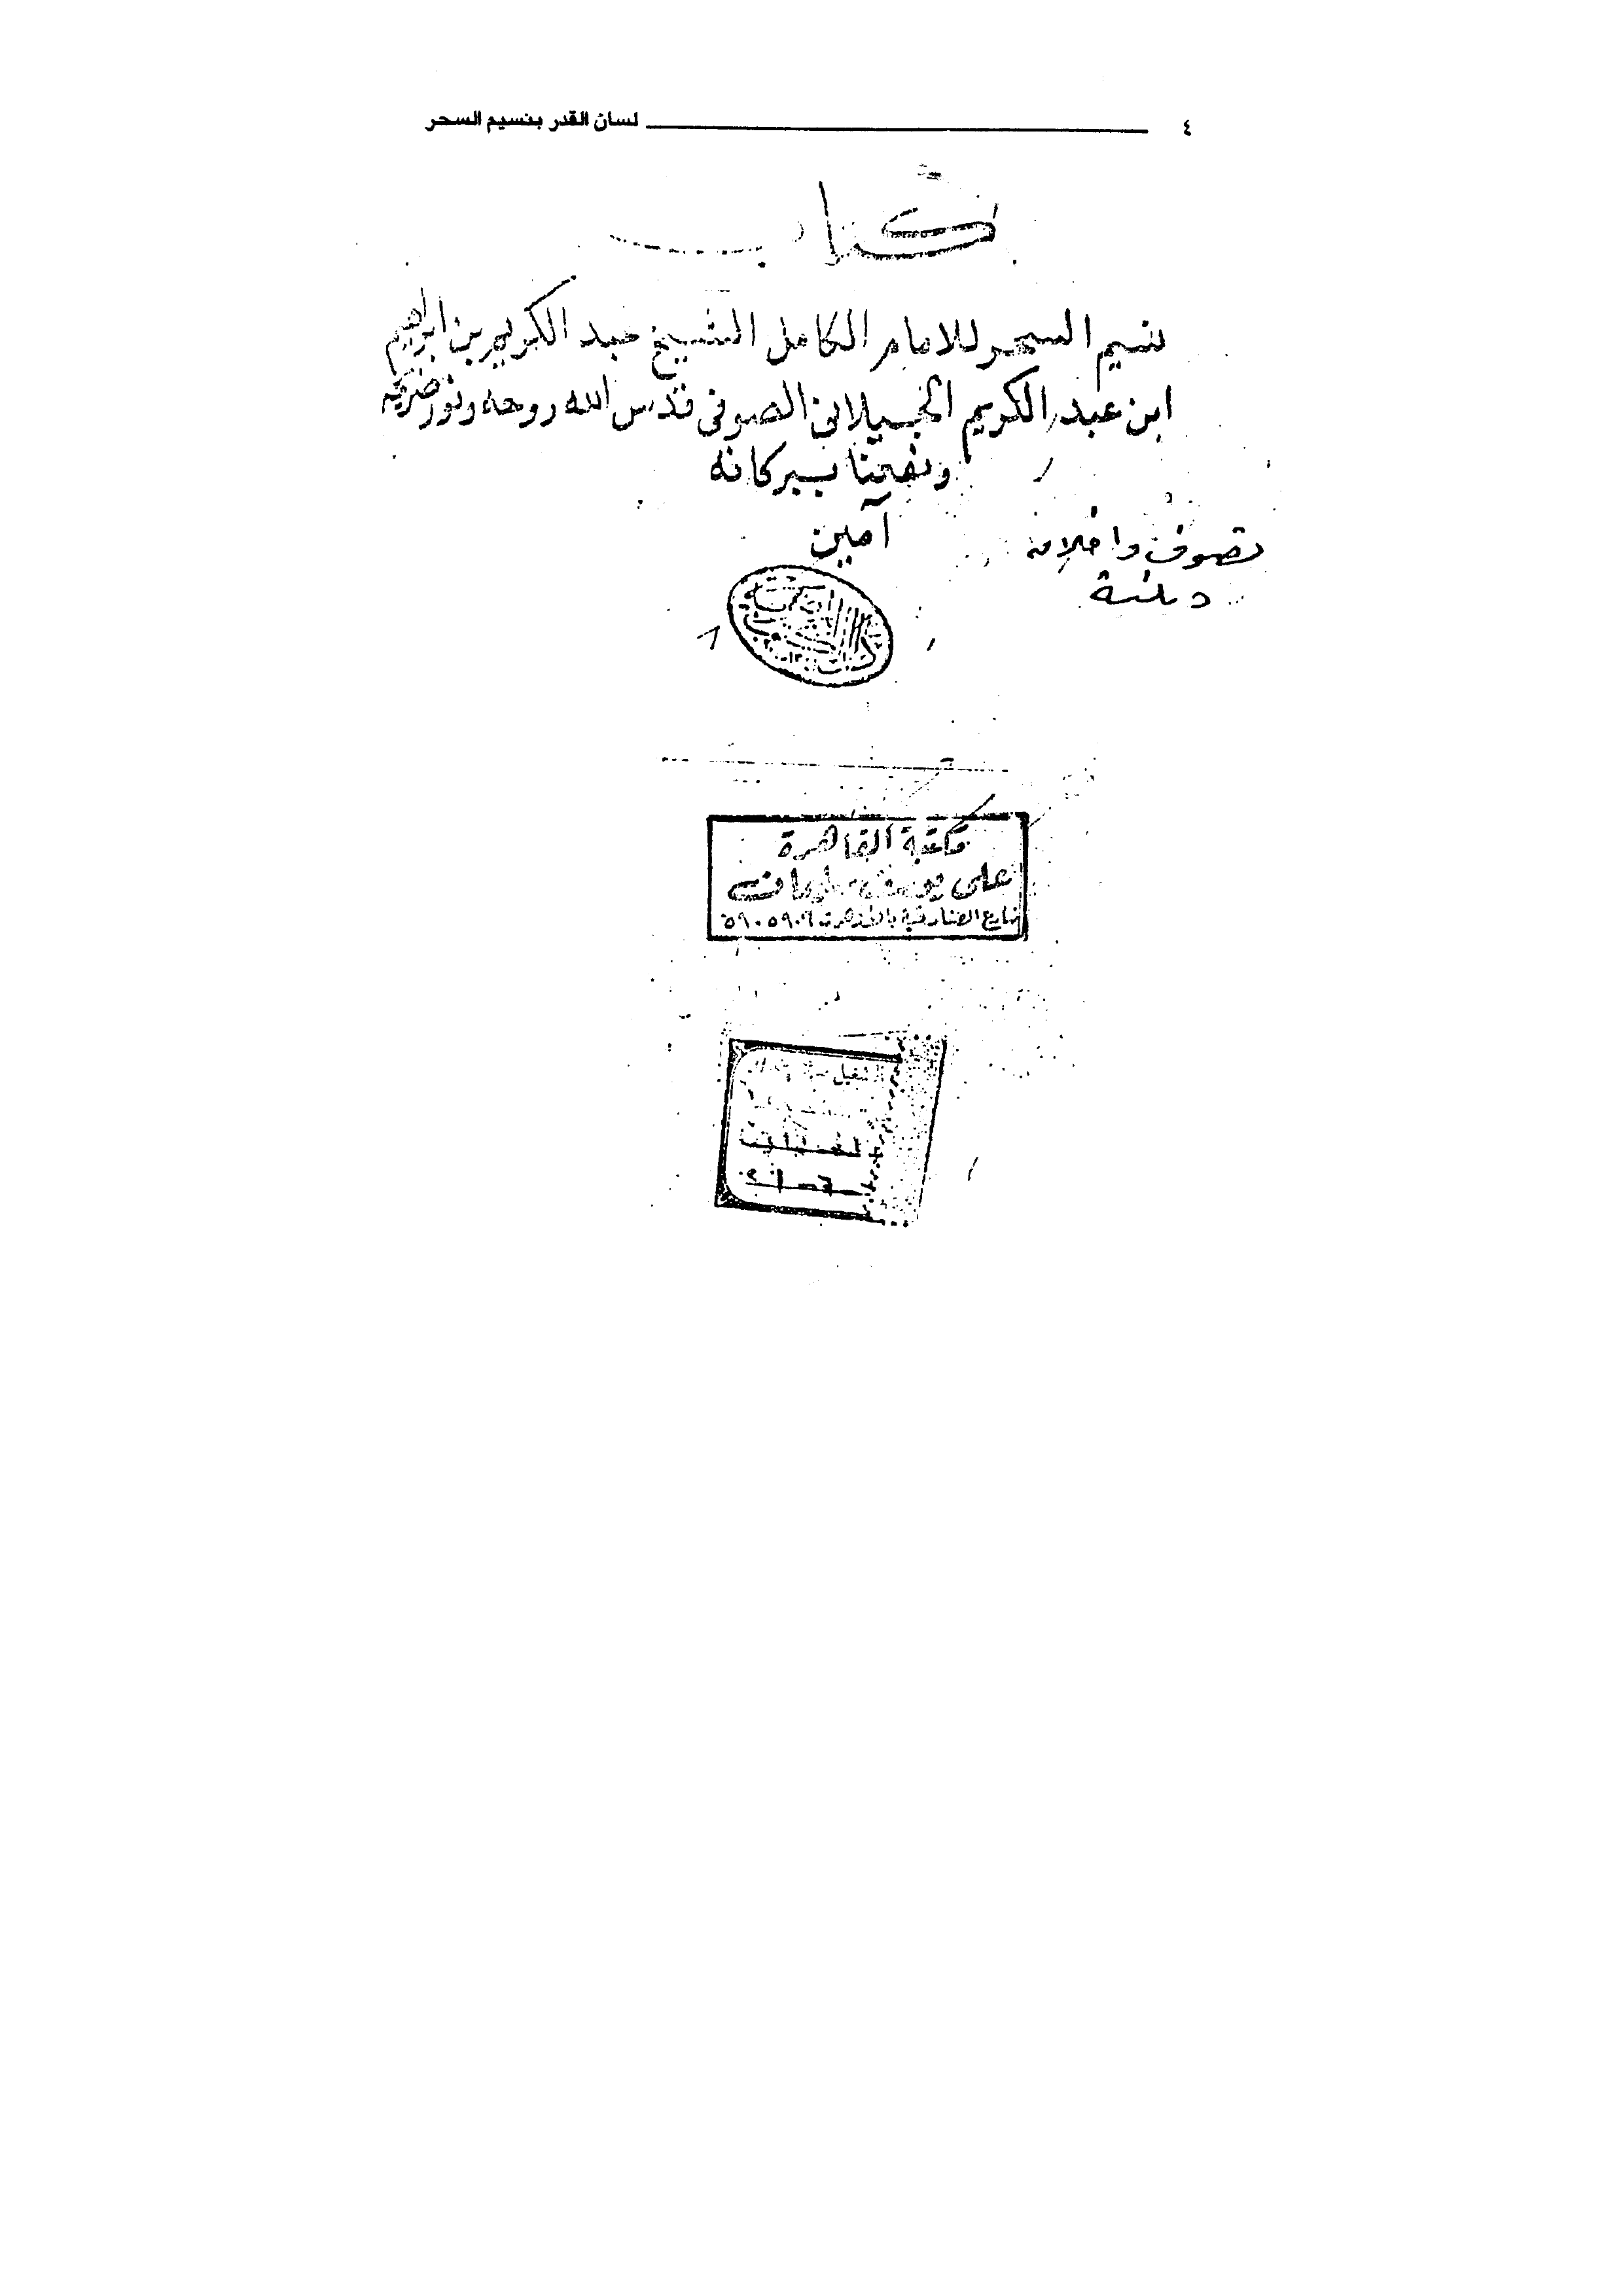 ٤ لسان القدر بنسيم السحر
كتاب
نسيم السحر للامام الكامل الشيخ عبد الكريم بن ابراهيم
ابن عبد الكريم الجيلانى الصوفى قدس الله روحه ونور ضريحه
ونفعنا ببركاته
آمين
تصوف واخلاق
دينية
مكتبة القاهرة
على يوسف سليمان
شارع الصنادقية بالقاهرة ٥٩٠٥٩٠٩